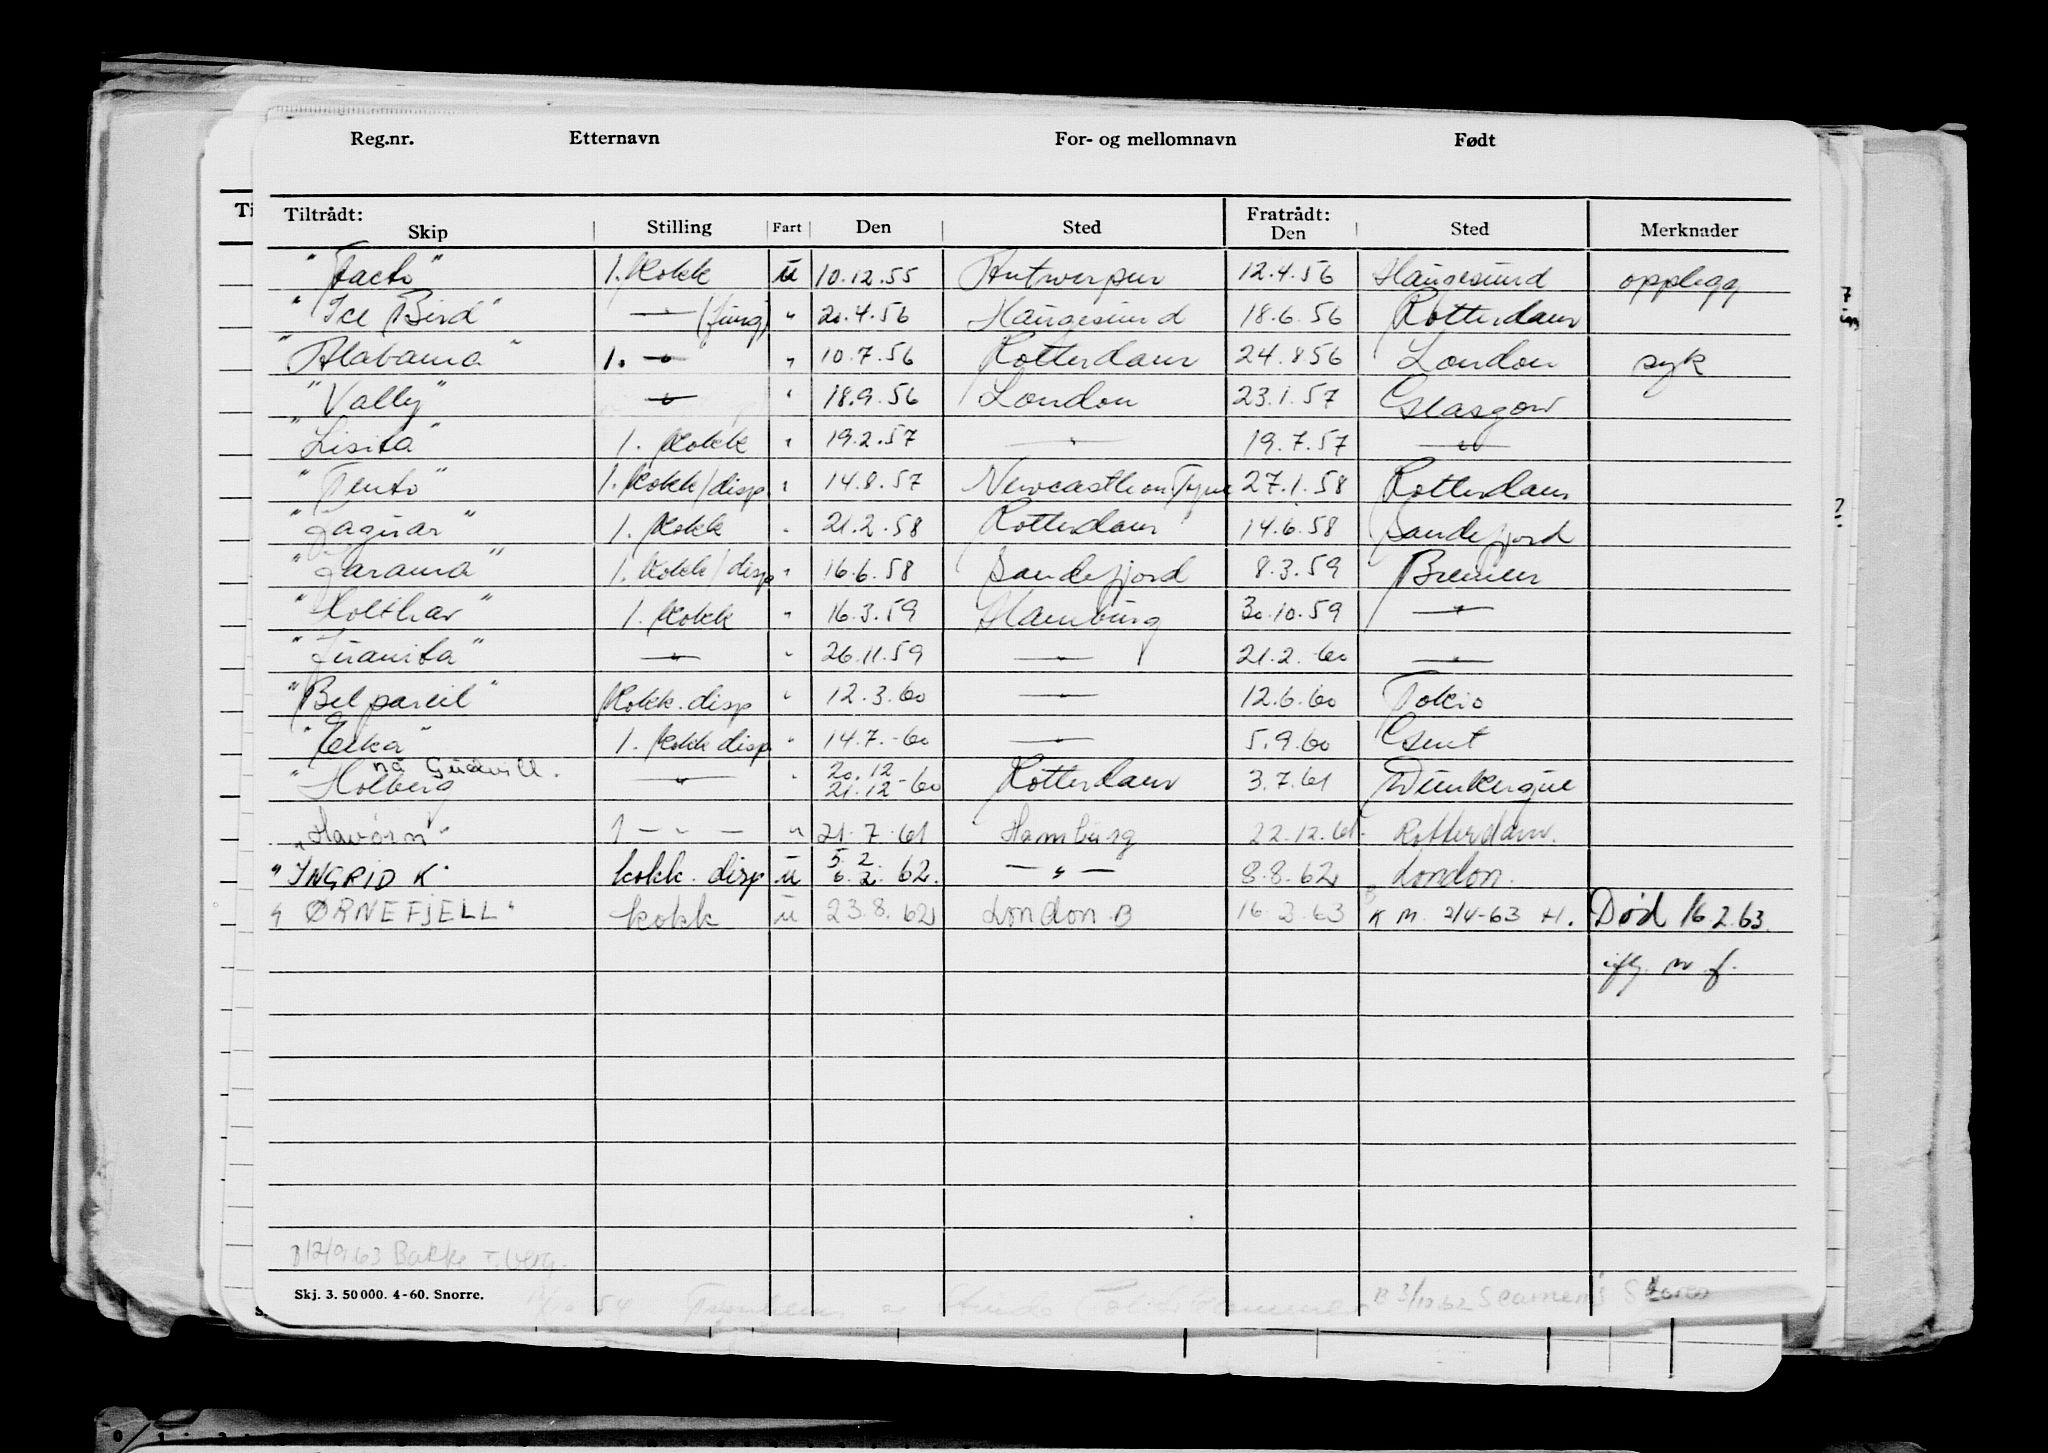 Reg.nr. Etternavn For- og mellomnavn Født
Tiltrådt: Skip Stilling Fart Den Sted Fratrådt: Den Sted Merknader
"Facto" 1. Kokk u 10.12.55 Antwerpen 12.4.56 Haugesund opplegg
"Ice Bird" —"— (fung) " 20.4.56 Haugesund 18.6.56 Rotterdam
"Alabama" 1. —"— " 10.7.56 Rotterdam 24.8.56 London syk
"Vally" —"— " 18.9.56 London 23.1.57 Glasgow
"Lisita" 1. Kokk " 19.2.57 —"— 19.7.57 —"—
"Tento" 1. Kokk/disp. " 14.8.57 Newcastle on Tyne 27.1.58 Rotterdam
"Jaguar" 1. Kokk " 21.2.58 Rotterdam 14.6.58 Sandefjord
"Jarama" 1. Kokk/disp " 16.6.58 Sandefjord 8.3.59 Bremen
"Holthav" 1. Kokk " 16.3.59 Hamburg 30.10.59 —"—
"Juanita" —"— " 26.11.59 —"— 21.2.-60 —"—
"Belpareil" Kokk.disp " 12.3.60 —"— 12.6.60 Tokio
"Erka" 1. Kokk disp " 14.7.-60 —"— 5.9.60 Gent
nå Gudvill. 20.12
"Holberg —"— " 21.12-60 Rotterdam 3.7.61 Dunkerque
"Havørn" 1 — " — " 21.7.61 Hamburg 22.12.61 Rotterdam.
5.2.
"INGRID K" kokk. disp u 6.2.62. — " — 8.8.62 London.
" ØRNEFJELL" kokk u 23.8.62 London B 16.2.63 K M. 2/4-63 H. Død 16.2.63.
iflg. m.f.
B 12/9.63 Bakke
Skj. 3. 50 000. 4-60. Snorre.
54
B 3/10.62 Seamen's Stores